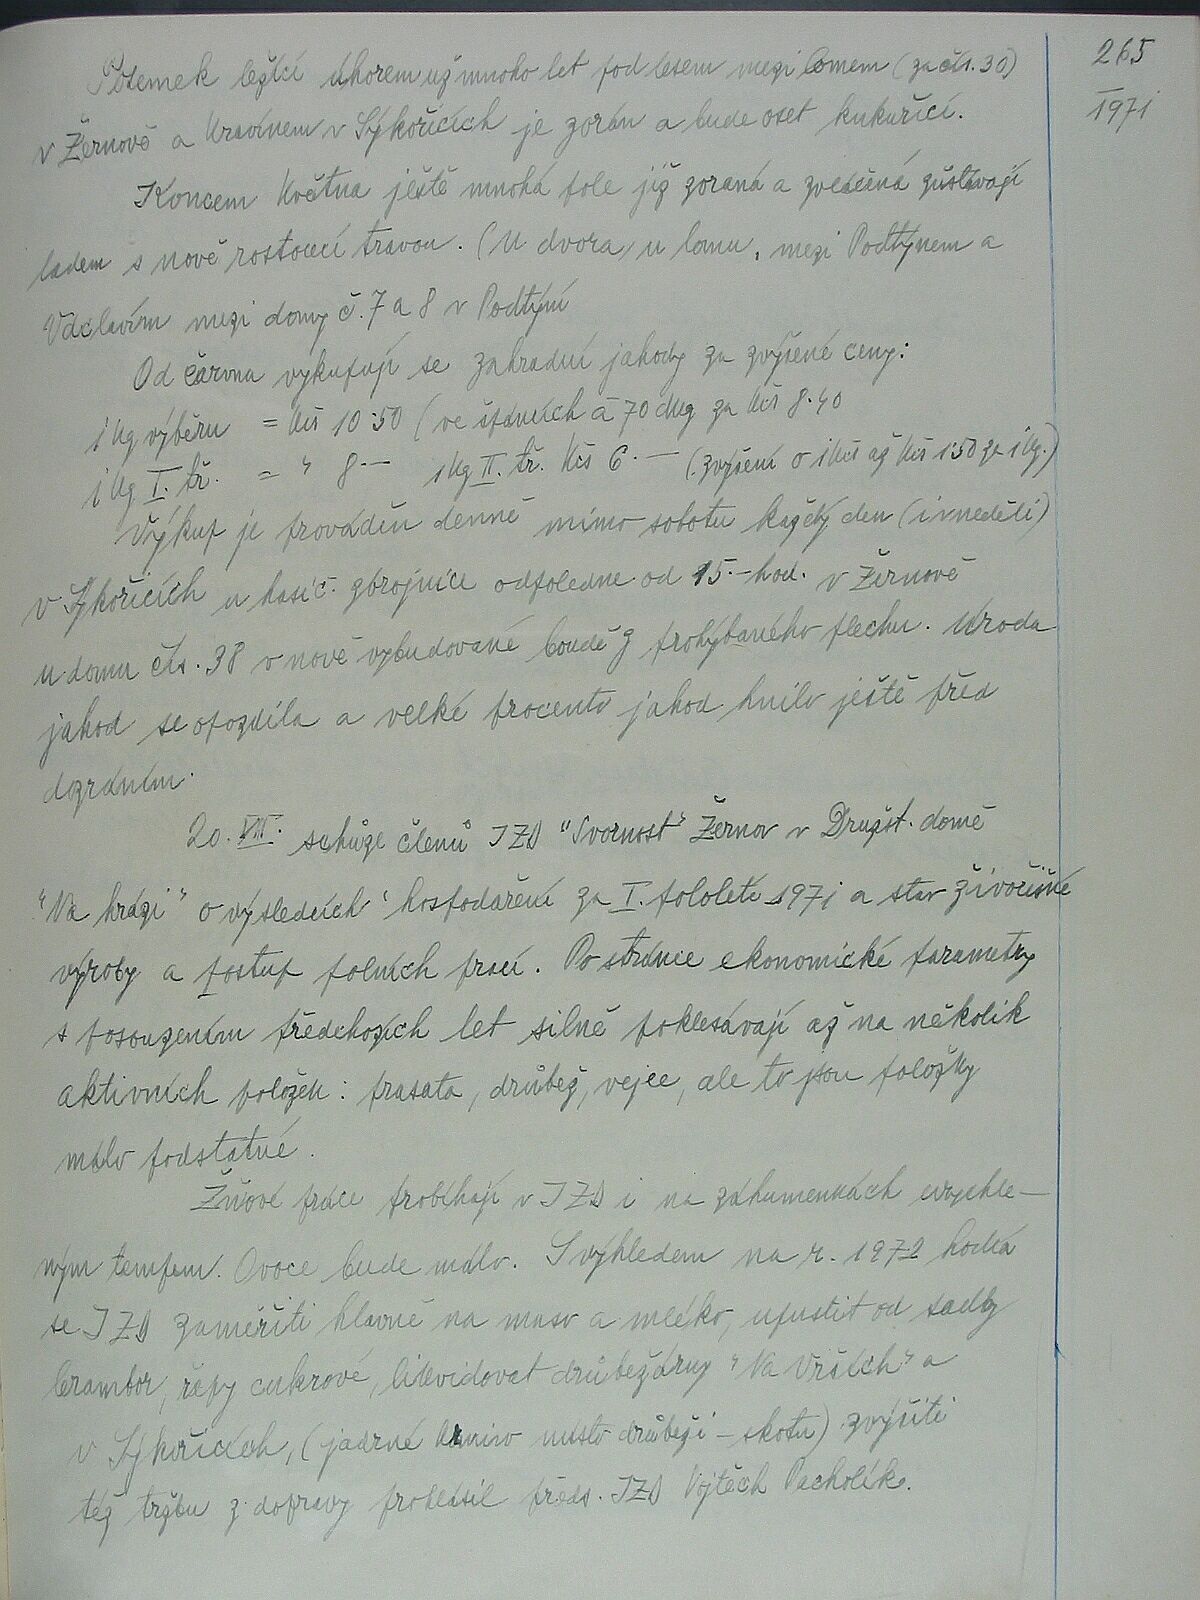 265
1971
Pozemek ležící úhorem už mnoho let pod lesem mezi lomem (za čís. 30)
v Žernově a Kravínem v Sýkořicích je zorán a bude oset kukuřicí.
Koncem Května ještě mnohá pole již zoraná a zvláčená zůstávají
ladem s nově rostoucí travou. (U dvora, u lomu, mezi Podtýnem a
Václavím mezi domy č. 7 a 8 v Podtýní
Od června vykupují se zahradní jahody za zvýšené ceny:
1 kg výběru = Kčs 10·50 (ve stáních à 70 dkg za Kčs 8·40
1 kg I. tř. = " 8·— 1 kg II. tř. Kčs 6·— (zvýšení o 1 Kčs až Kčs 1·50 za 1 kg.)
Výkup je prováděn denně mimo sobotu každý den (i v neděli)
v Sýkořicích u hasič. zbrojnice odpoledne od 15·-hod. v Žernově
u domu čís. 38 v nově vybudované boudě z prohýbaného plechu. Úroda
jahod se opozdila a velké procento jahod hnilo ještě před
dozráním.
20. VII. schůze členů JZD "Svornost" Žernov v Družst. domě
"Na hrázi" o výsledcích hospodaření za I. pololetí 1971 a stav živočišné
výroby a postup polních prací. Po stránce ekonomické parametry
s posouzením předchozích let silně poklesávají až na několik
aktivních položek: prasata, drůbež, vejce, ale to jsou položky
málo podstatné.
Žňové práce probíhají v JZD i na záhumenkách urychle-
ným tempem. Ovoce bude málo. S výhledem na r. 1972 hodlá
se JZD zaměřiti hlavně na maso a mléko, upustit od sadby
brambor, řepy cukrové, likvidovat drůbežárny "Na Vrších" a
v Sýkořicích, (jadrné krmivo místo drůbeži – skotu) zvýšiti
též tržbu z dopravy prohlásil předs. JZD Vojtěch Pacholík.